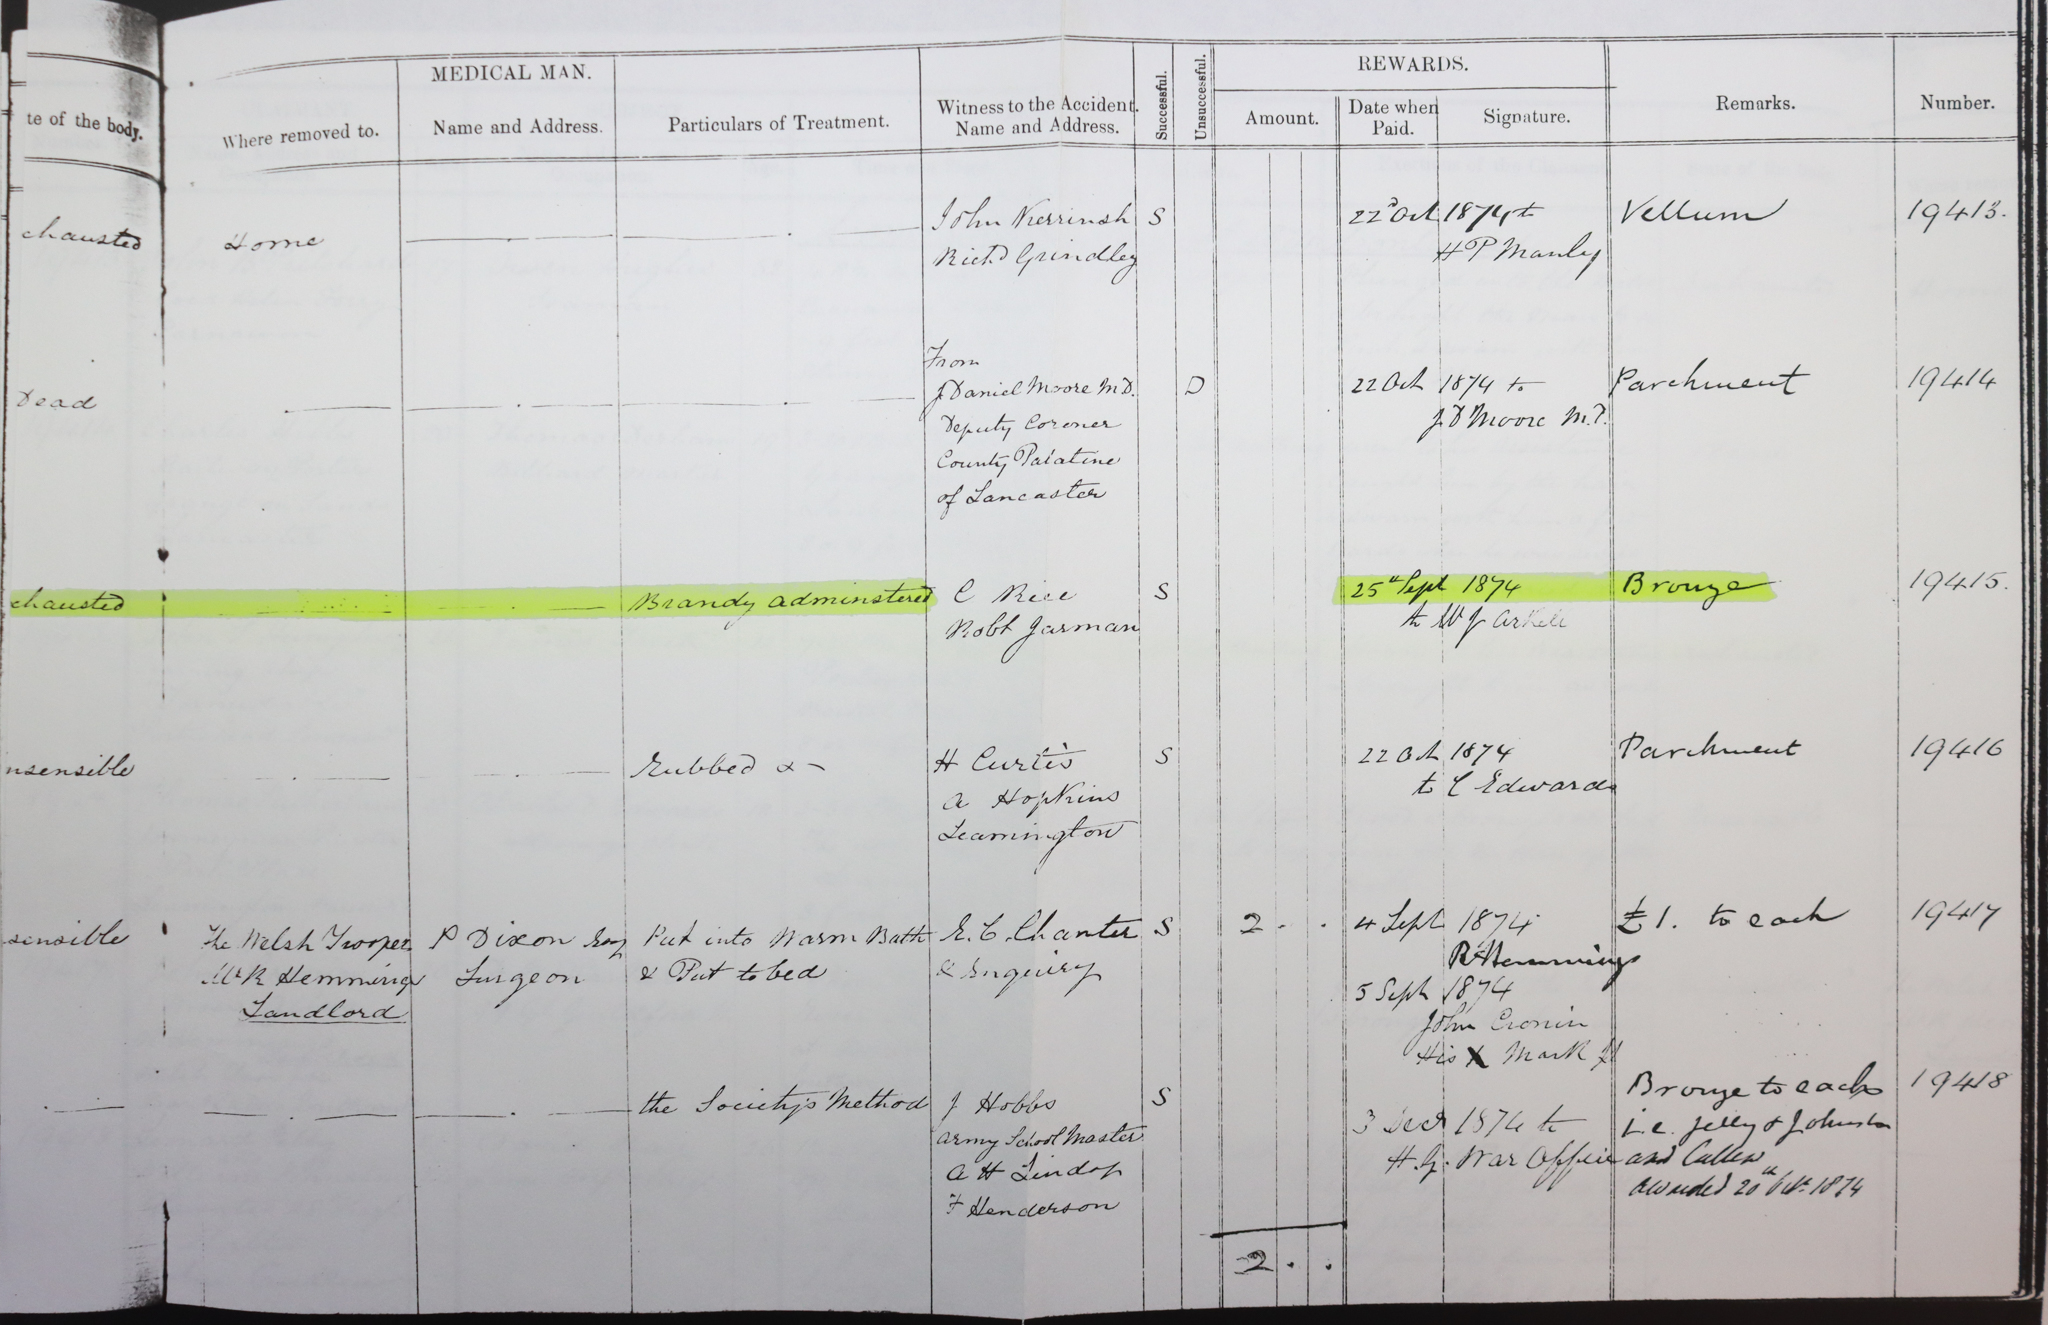 MEDICAL MAN.
REWARDS.
te of the body.
Where removed to.
Name and Address.
Particulars of Treatment.
Witness to the Accident.
Name and Address.
Successful.
Unsuccessful.
Amount.
Date when
Paid.
Signature.
Remarks.
Number.
chausted Home John Kerrinsh S 22d Oct 1874 to Vellum 19413.
Richd Grindley H P Manley
From
Dead J Daniel Moore M.D. D 22 Oct 1874 to Parchment 19414
Deputy Coroner J D Moore M.D.
County Palatine
of Lancaster
chausted Brandy adminstered C Rice S 25th Sept 1874 Bronze 19415.
Robt Jarman to W J Arkell
nsensible Rubbed & H Curtis S 22 Oct 1874 Parchment 19416
A Hopkins to C Edwards
Leamington
sensible The Welsh Trooper P Dixon Esq Put into Warm Bath E. C. Chanter S 2 . . 4 Sept 1874 £1. to each 19417
Mr R Hemming Surgeon & Put to bed & Enquiry R Hemmings
Landlord 5 Sept 1874
John Cronin
His X Mark
the Society's Method J Hobbs S Bronze to each 19418
Army School Master 3 Decr 1874 to i.e. Jelly & Johnston
A H Lindop H. G. War Office and Cullen
F Henderson awarded 20th Octr. 1874
2 . .